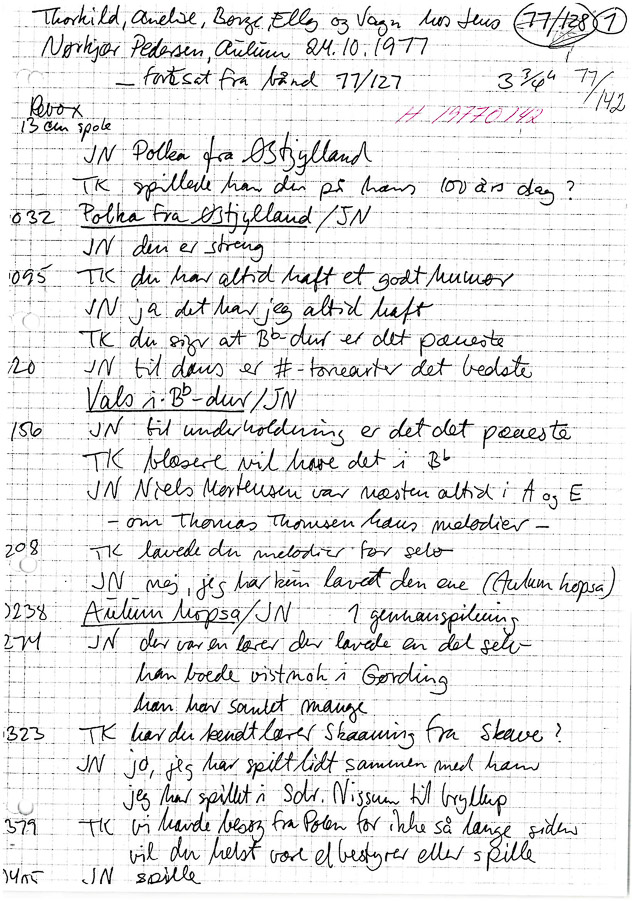 Thorkild, Anelise, Børge, Elly og Vagn hos Jens 77/128 1
Nørkjær Pedersen, Aulum 24.10.1977
— fortsat fra bånd 77/127 3 3/4" 77/142
H 19770142
Revox
13 cm spole
JN Polka fra Østjylland
TK spillede han den på hans 100 års dag?
032 Polka fra Østjylland/JN
JN den er streng
095 TK du har altid haft et godt humør
JN ja det har jeg altid haft
TK du siger at Bb-dur er det pæneste
120 JN til dans er #-tonearter det bedste
Vals i Bb-dur/JN
156 JN til underholdning er det det pæneste
TK blæsere vil have det i Bb
JN Niels Mortensen var næsten altid i A og E
- om Thomas Thomsen hans melodier -
208 TK lavede du melodier før selv
JN nej, jeg har kun lavet den ene (Aulum hopsa)
0238 Aulum hopsa/JN 1 gennemspilning
274 JN der var en lærer der lavede en del selv
han boede vistnok i Gørding
han har samlet mange
0323 TK har du kendt lærer Skaaning fra Skave?
JN jo, jeg har spilt lidt sammen med ham
jeg har spillet i Sdr. Nissum til bryllup
0379 TK vi havde besøg fra Polen for ikke så længe siden
vil du helst være elbestyrer eller spille
JN spille